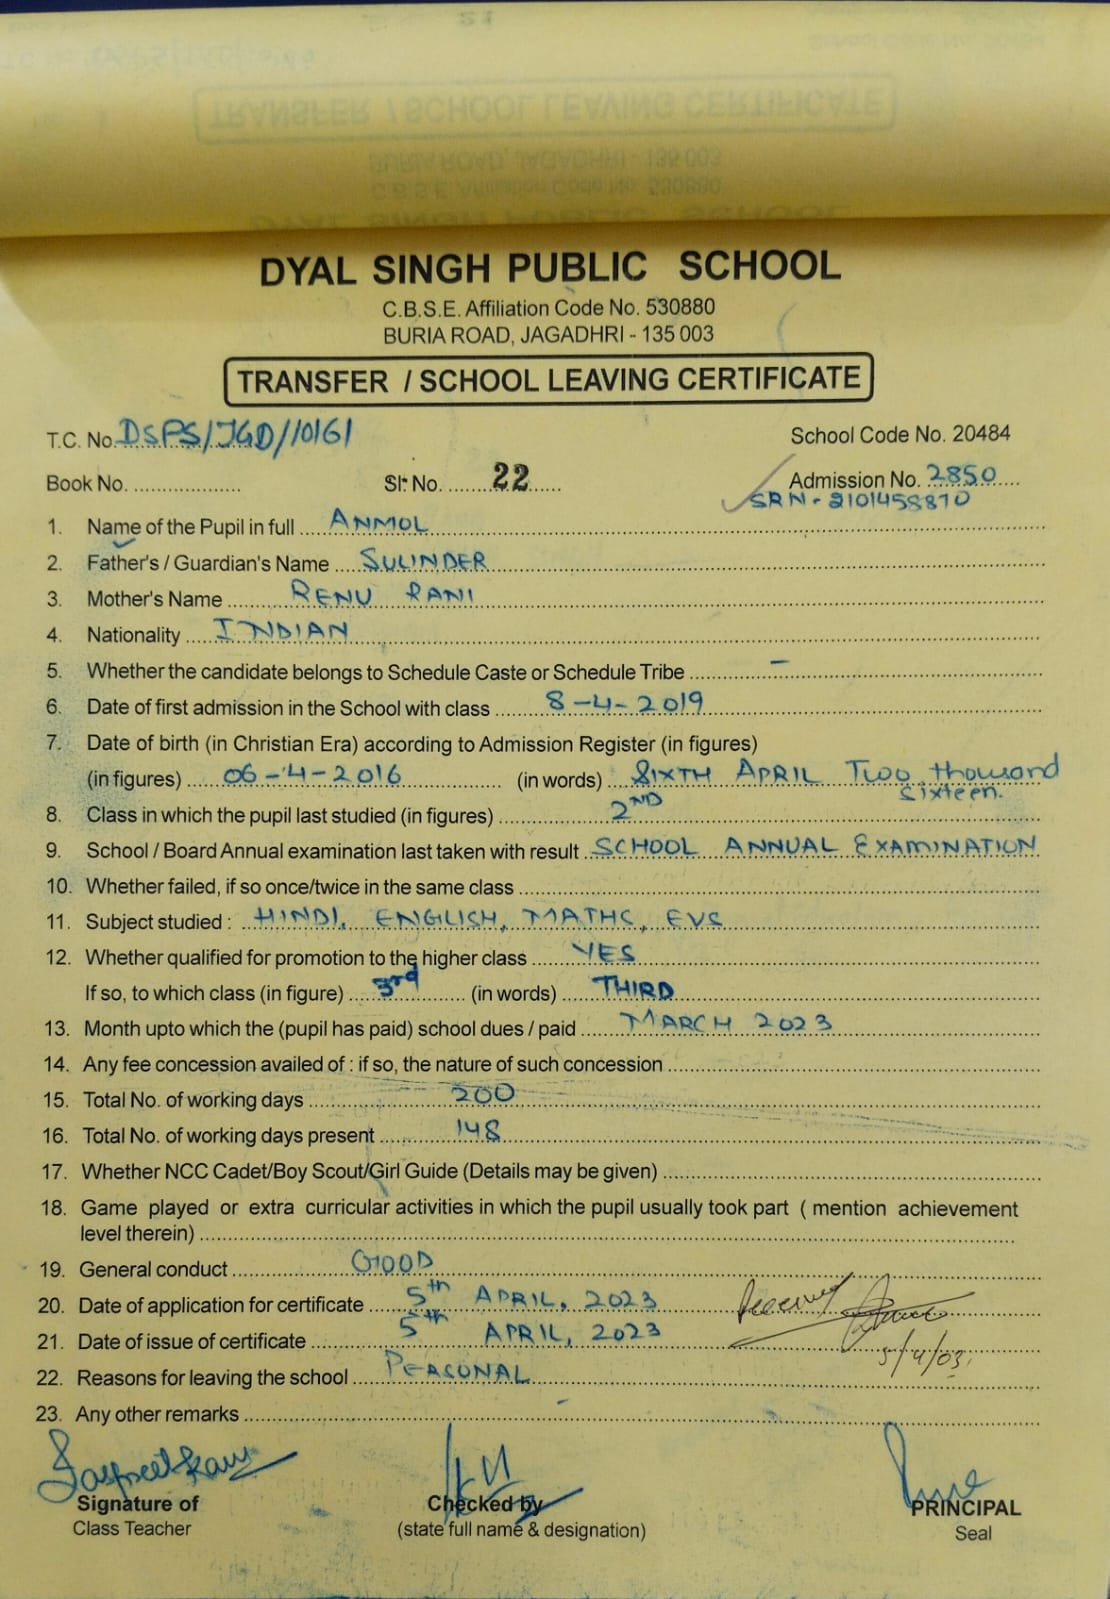 DYAL SINGH PUBLIC SCHOOL
C.B.S.E. Affiliation Code No. 530880
BURIA ROAD, JAGADHRI - 135 003
TRANSFER / SCHOOL LEAVING CERTIFICATE
T.C. No. DSPS/JGD/10161 School Code No. 20484
Book No. .................... Sl. No. 22 Admission No. 2850
SRN - 2101458870
1. Name of the Pupil in full ANMOL
2. Father's / Guardian's Name SULINDER
3. Mother's Name RENU RANI
4. Nationality INDIAN
5. Whether the candidate belongs to Schedule Caste or Schedule Tribe –
6. Date of first admission in the School with class 8-4-2019
7. Date of birth (in Christian Era) according to Admission Register (in figures)
(in figures) 06-4-2016 (in words) SIXTH APRIL TWO thousand
sixteen.
8. Class in which the pupil last studied (in figures) 2ND
9. School / Board Annual examination last taken with result SCHOOL ANNUAL EXAMINATION
10. Whether failed, if so once/twice in the same class
11. Subject studied : HINDI, ENGLISH, MATHS, EVS
12. Whether qualified for promotion to the higher class YES
If so, to which class (in figure) 3rd (in words) THIRD
13. Month upto which the (pupil has paid) school dues / paid MARCH 2023
14. Any fee concession availed of : if so, the nature of such concession
15. Total No. of working days 200
16. Total No. of working days present 148
17. Whether NCC Cadet/Boy Scout/Girl Guide (Details may be given)
18. Game played or extra curricular activities in which the pupil usually took part ( mention achievement
level therein)
19. General conduct GOOD
20. Date of application for certificate 5th APRIL, 2023
21. Date of issue of certificate 5th APRIL, 2023
Received
5/4/03
22. Reasons for leaving the school PERSONAL
23. Any other remarks –
Signature of Checked by PRINCIPAL
Class Teacher (state full name & designation) Seal